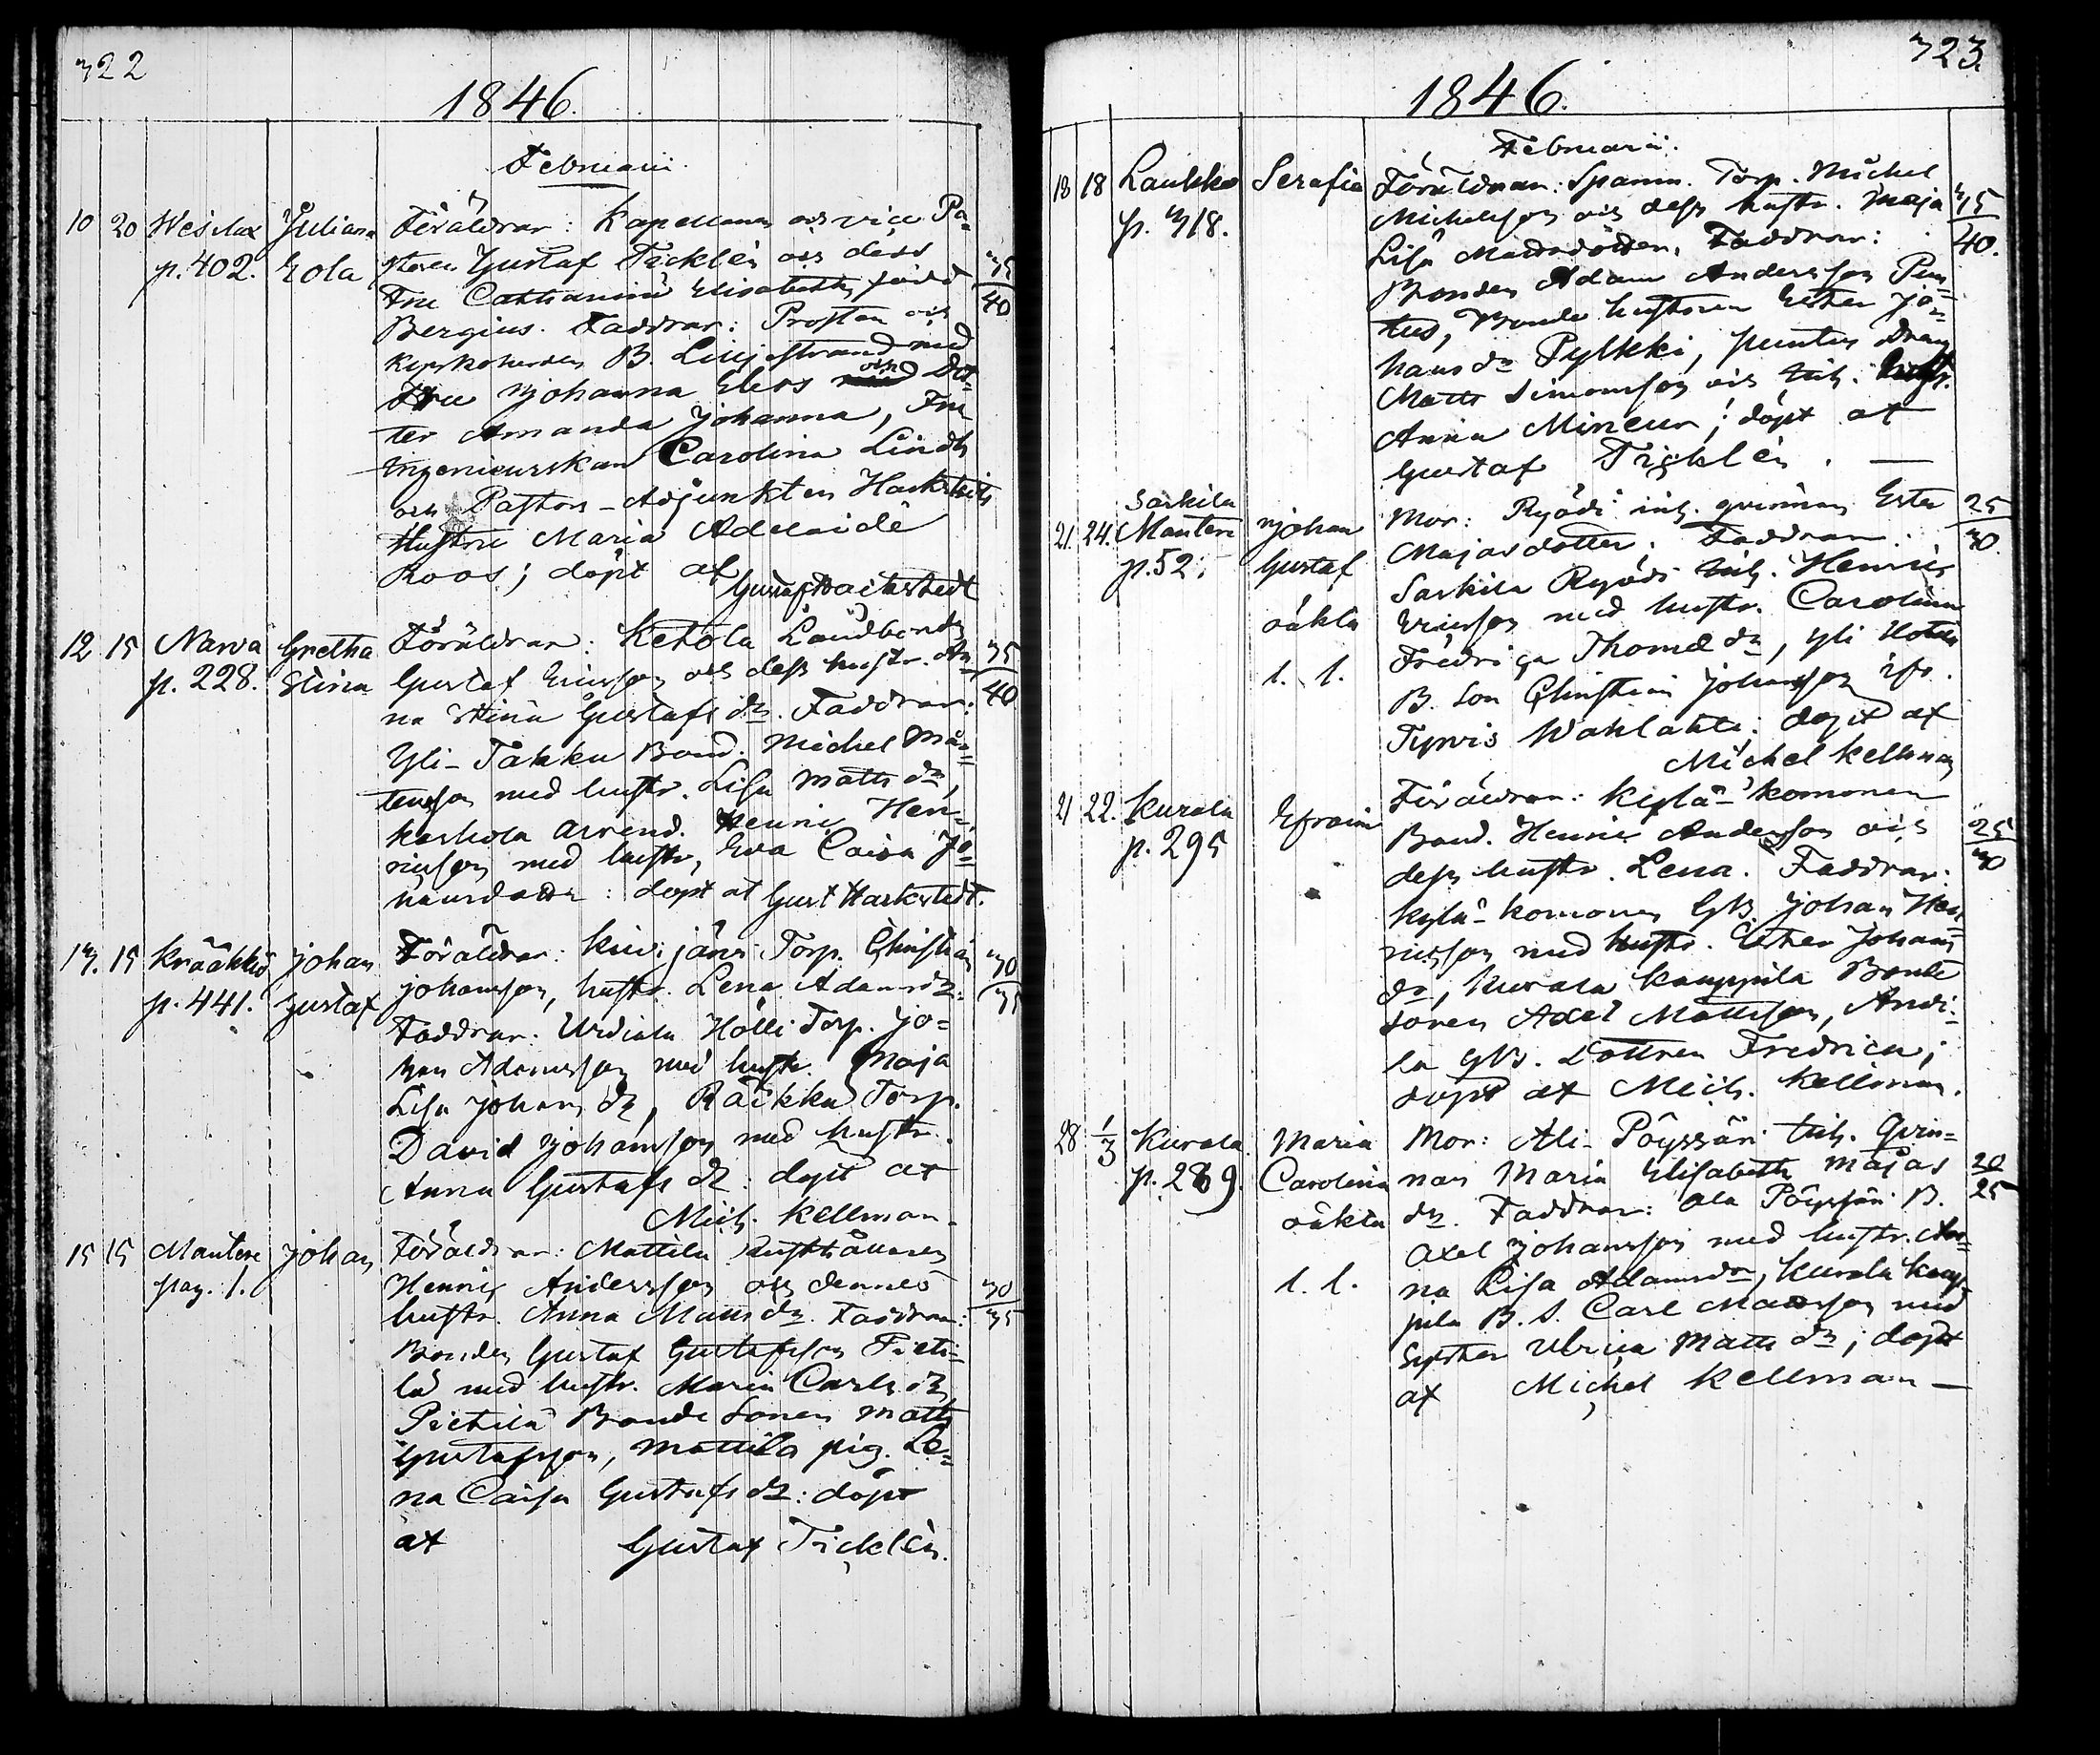 322
1846.
Februarii.
10 20 Wesilax Juliana Föräldrar: Kapellanen och vice Pa-
p. 402. Eola storen Gustaf Ticklén och dess 35/40
Fru Catharina Elisabeth född
Bergius. Faddrar: Prosten och
Kyrkoherden B. Liljestrand med
Fru Johanna Elers och Dot-
ter Amanda Johanna, Fru
Ingenieurskan Carolina Lindh
och Pastors-Adjunkten Hackstedts
Hustru Maria Adelaide
Roos; döpt af
Gustaf Hackstedt
12 15 Narva Gretha Föräldrar: Ketola Landbonden 35/40
p. 228. Stina Gustaf Ericsson och dess hustr. An-
na Stina Gustafs dr. Faddrar:
Yli-Takku Bond. Michel Mår-
tensson med hustr. Lisa Matts dr,
Arrend. Henric Hen-
ricsson med hustr. Eva Caisa Jo-
hansdottr: döpt af Gust Hackstedt.
13. 15 Krääkkiö Johan Föräldrar: Kivijärvi Torp. Christian 30/35
p. 441. Gustaf Johansson, hustr. Lena Adamsdr.
Faddrar: Urdiala Hölli Torp. Jo-
han Adamsson med hustr. Maja
Lisa Johans dr, Räikku Torp.
David Johansson med hustr.
Anna Gustafs dr: döpt af
Mich. Kellman.
15 15 Mantere Johan Föräldrar: Mattila Rusthållaren
pag. 1. Henric Andersson och dennes 30/35
hustr. Anna Matts dr. Faddrar:
Bonden Gustaf Gustafsson Pieti-
lä med hustr. Maria Carls dr
Pietilä Bonde Sonen Matts
Gustafsson, Mattila pig. Le-
na Caisa Gustafs dr: döpt
af Gustaf Ticklén.
323.
1846.
Februarii.
18 18 Laukko Serafia Föräldrar: Spann. Torp. Michel 35/40.
p. 318. Michelsson och dess hustr. Maja
Lisa Mattsdotter. Faddrar:
Bonden Adam Andersson Pun-
tus, Bonde hustrun Ester Jo-
hans dr Pylkki, Puntus Dräng
Matts Simonsson och inh. hustr.
Anna Mineur; döpt af
Gustaf Ticklén. —
Sarkila
21. 24. Mantere Johan Mor: Ryödi inh. qvinnan Ester 25/30.
p. 52. Gustaf Majasdotter. Faddrar:
oäkta Sarkila Ryödi inh. Henric
Ericsson med hustr. Carolina
l. l. Fredrica Thomæ dr, Yli
B. Son Christian Johansson ifr.
Tyrvis Wahlahti: döpt af
Michel Kellman
21 22. Kurala Efraim Föräldrar: Kylä-komonen
p. 295 Bond. Henric Andersson och 25/30
dess hustr. Lena. Faddrar:
Kylä-komonen Gb. Johan Hen-
ricsson med hustr. Ester Johans
dr, Kurala Kauppila Bonde
sonen Axel Mattsson, Andi-
la Gb. Dottren Fredrica;
döpt af Mich. Kellman.
28 1/3 Kurala Maria Mor: Ali-Pöyssäri inh. Qvin-
p. 289. Carolina nan Maria Elisabeth Majas 20/25
oäkta dr. Faddrar: Ala Pöyssäri B.
Axel Johansson med hustr. An-
l. l. na Lisa Adamsdr, Kurala Kaup-
pila B. S. Carl Mattsson med
Syster Ulrica Matts dr; döpt
af Michel Kellman —